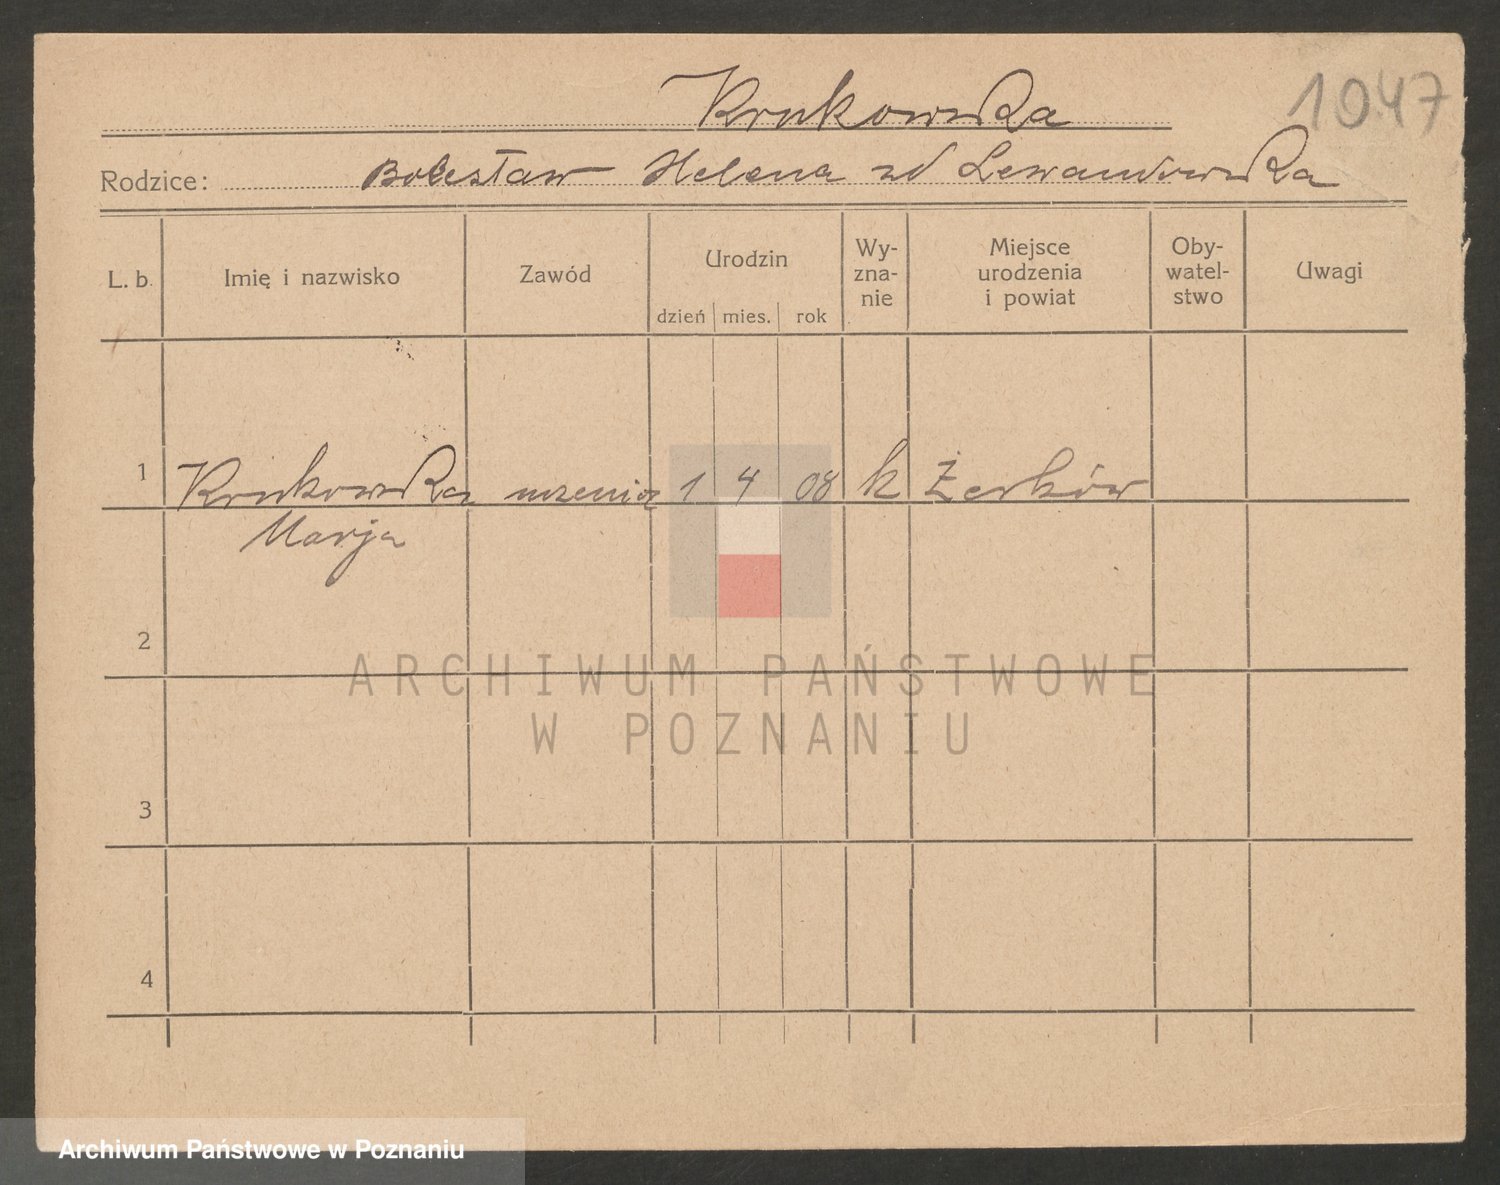 Krukowska
1047
Rodzice: Bolesław Helena zd Lewandowska
L. b. Imię i nazwisko Zawód Urodzin Wy-zna-nie Miejsce urodzenia i powiat Oby-watel-stwo Uwagi
dzień mies. rok
1 Krukowska uczenica 1 4 08 k Żerków
Marja
2
ARCHIWUM PAŃSTWOWE
W POZNANIU
3
4
Archiwum Państwowe w Poznaniu